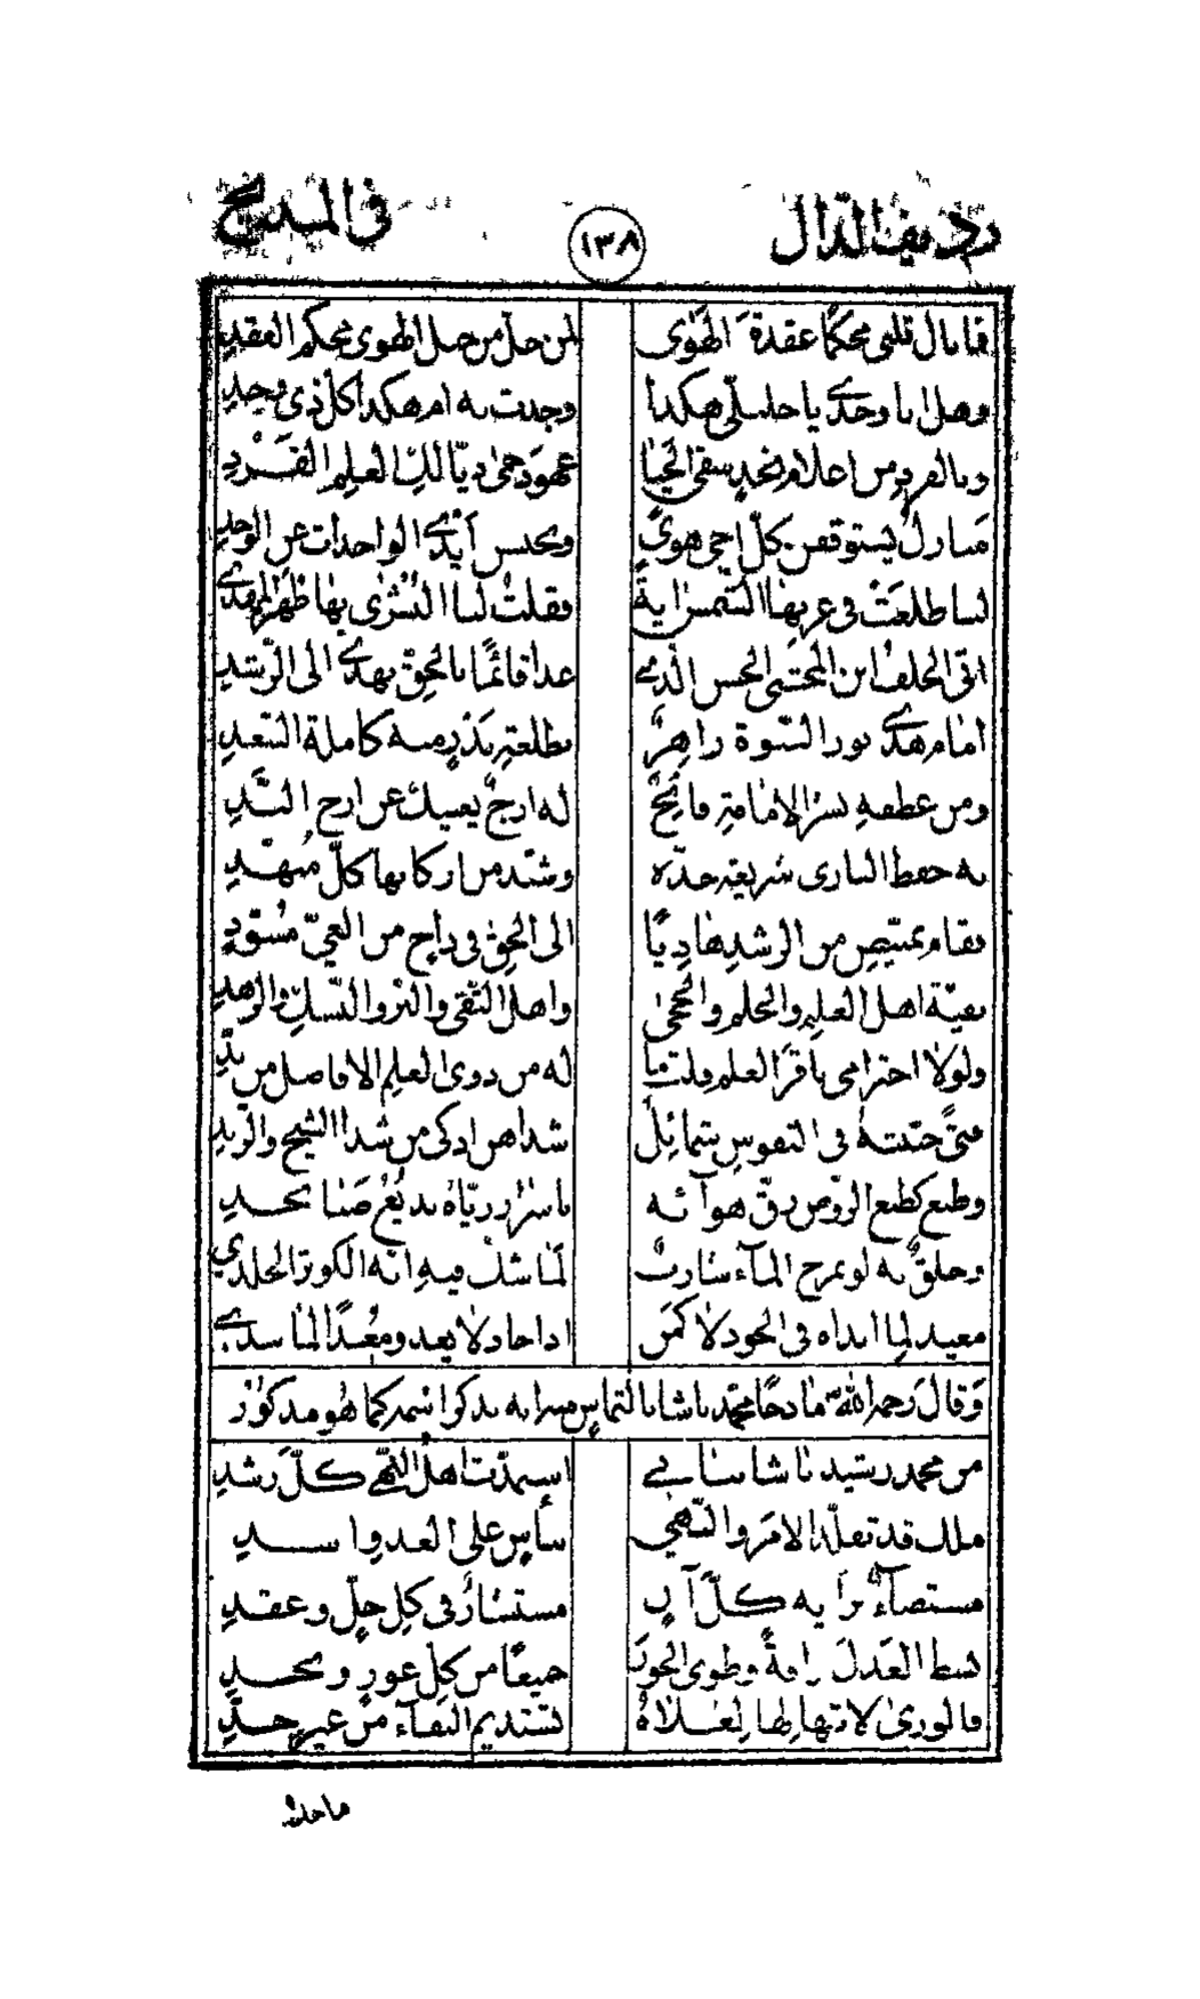 رديف الدال ١٣٨ في المديح
فما بال قلبي محكما عقدة الهوى لمن حل من حبل الهوى محكم العقد
وهل انا وحدي يا خليلي هكذا وجدت به ام هكذا كل ذي وجد
وبالفرد من اعلام نجد سقى الحيا عهود حمى ديالك العلم الفرد
منازل يستوقفن كل اخي هوى وتحبس ايدي الواجدات عن الوخد
لنا طلعت في غربها الشمس اية فقلت لنا البشرى بها ظهر المهدي
اتى الخلف ابن المجتبى الحسن الذي غدا قائما بالحق يهدي الى الرشد
امام هدى نور النبوة زاهر بطلعته بدر منه كاملة السعد
ومن عطفه نشر الامامة فائح له ارج يغنيك عن ارج الند
به حفظ الباري شريعة جده وشيد من اركانها كل منهد
فقام بمبيض من الرشد هاديا الى الحق في داج من الغي مسود
بقية اهل العلم والحلم والحجى واهل التقى والبر والنسك والزهد
ولولا احترامي باقر العلم قلت ما له من ذوي العلم الافاضل من ند
فتى حببته في النفوس شمائل شذاهن اذكى من شذا الشيح والرند
وطبع كطبع الروض رق هوائه باسرار رياه يديع صبا نجد
وخلق به لو يمزج الماء شارب لما شك فيه انه الكوثر الخلدي
معيد لما ابداه في الجود لا كمن اذا جاد لا يعد ومعدا لما يسدي
وقال رحمه الله مادحا محمد باشا بالتماس بذكر اسمه كما هو مذكور
من محمد رشيد باشا استمدت اهل النهى كل رشد
ملك قد تقلد الامر والنهي ببأس على العدو اسد
مستضاء برأيه كل آن مستشار في كل حل وعقد
بسط العدل رافة وطوى الجور جميعا من كل غور ونجد
فالورى لابتهالها لعلاه تستديم البقاء من غير حد